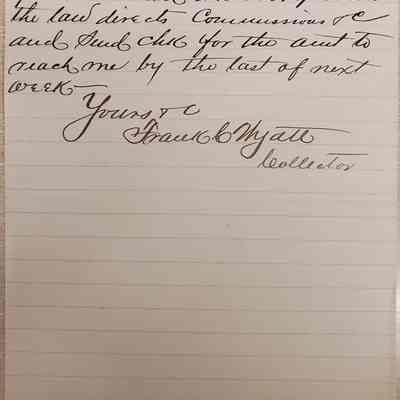 the law directs Commissions &c
and Send chk for the amt to
reach me by the last of next
week
Yours &c
Frank C Wyatt
Collector